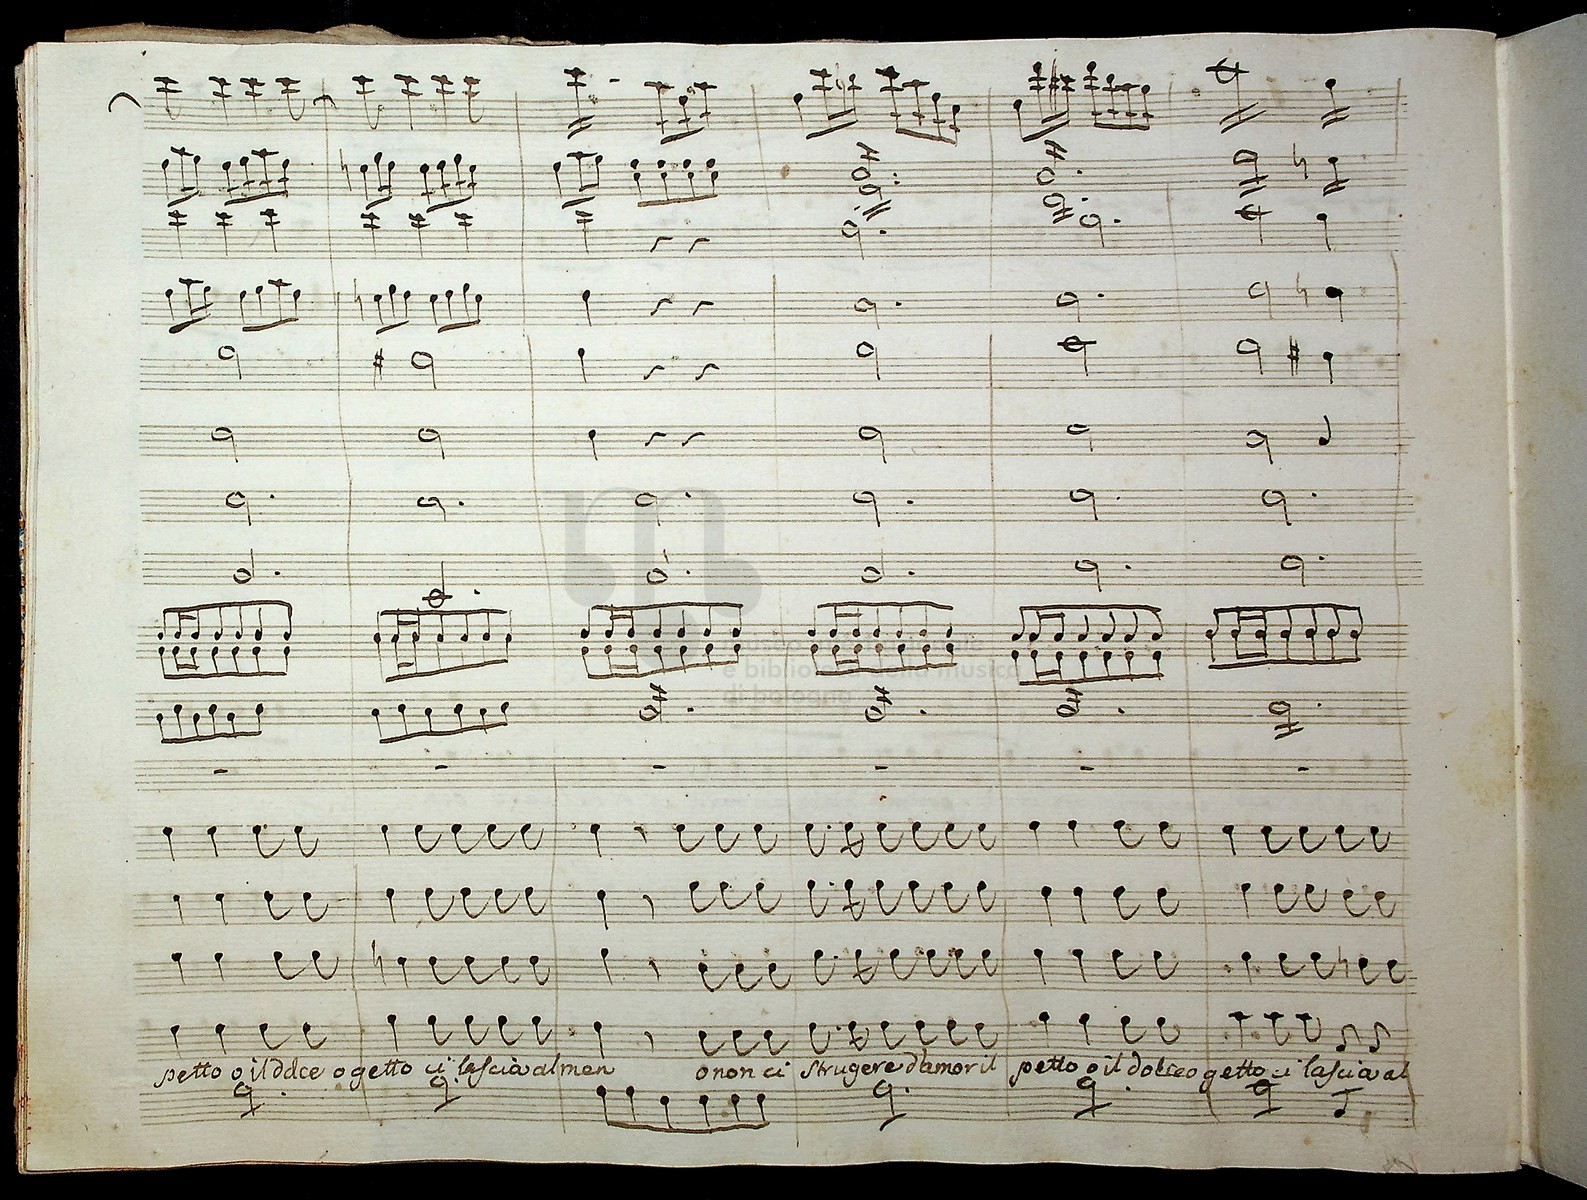 museo internazionale
e biblioteca della musica
di bologna
petto o il dolce ogetto ci lascia almen o non ci strugere d'amor il petto o il dolce ogetto ci lascia al